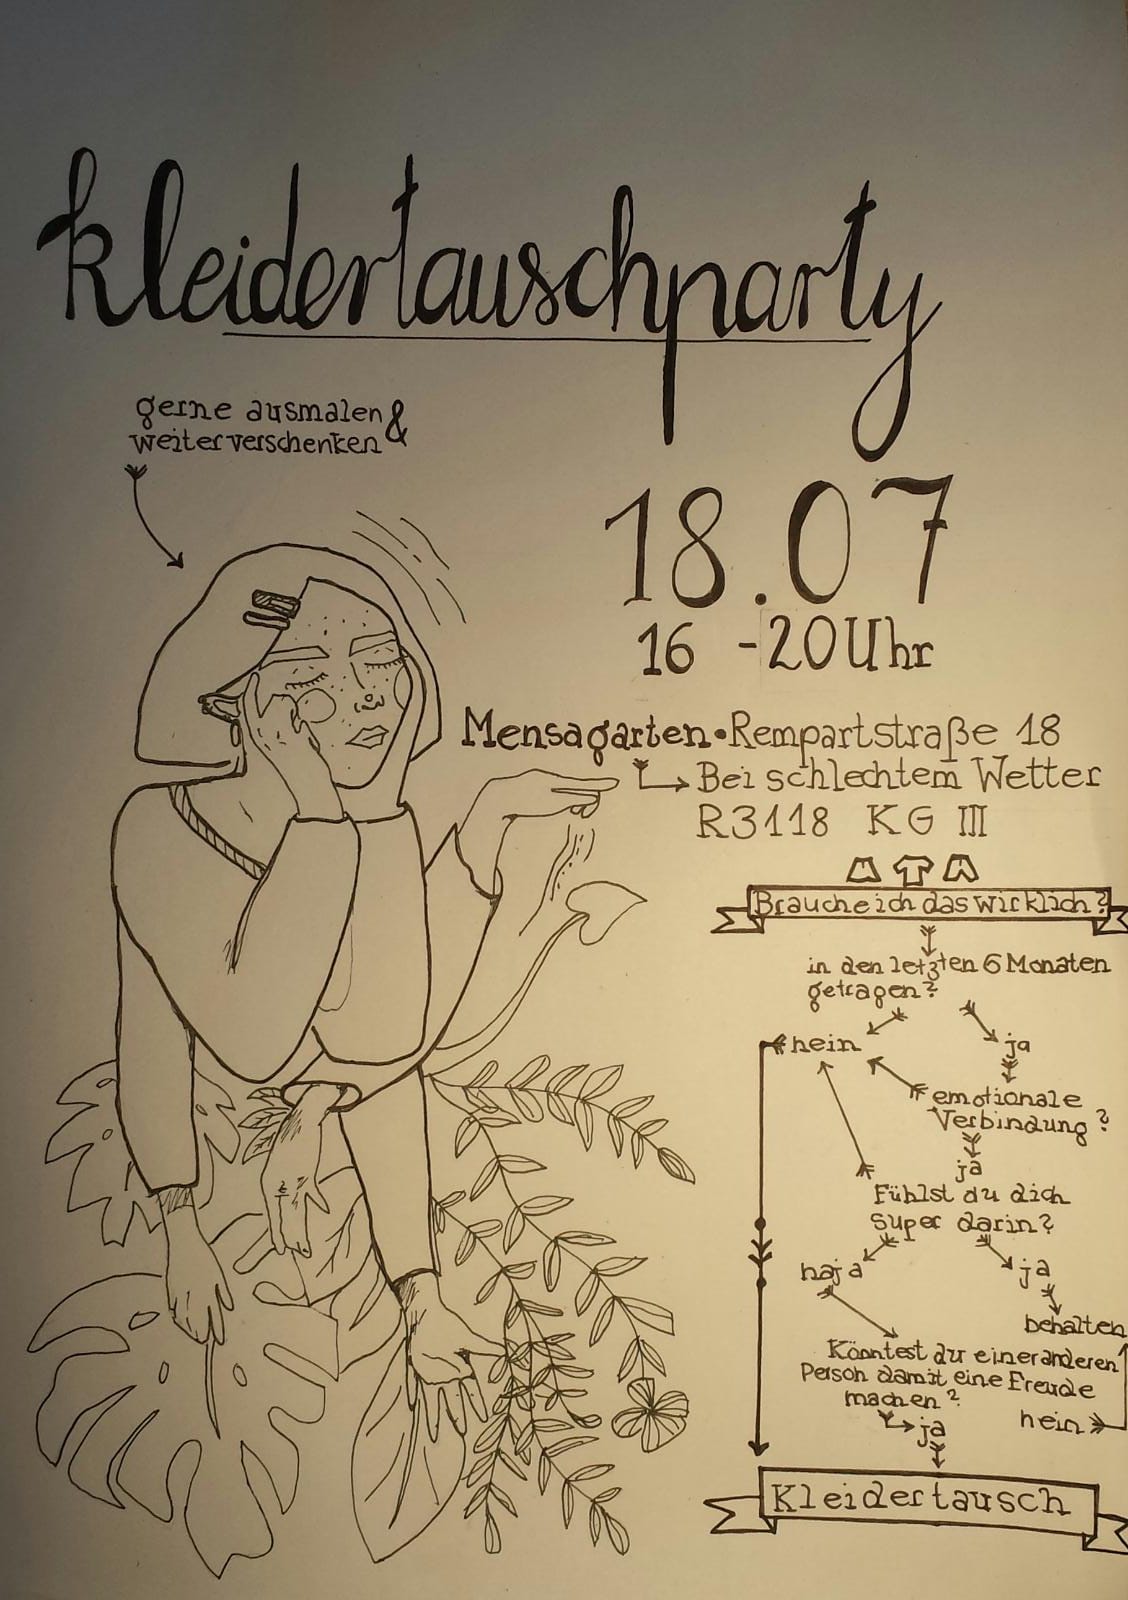 kleidertauschparty
gerne ausmalen &
weiterverschenken
18.07
16 - 20 Uhr
Mensagarten • Rempartstraße 18
Bei schlechtem Wetter
R3118 KG III
Brauche ich das wirklich?
in den letzten 6 Monaten
getragen?
nein
ja
emotionale
Verbindung?
ja
Fühlst du dich
super darin?
naja
ja
behalten
Könntest du einer anderen
Person damit eine Freude
machen?
nein
ja
Kleidertausch